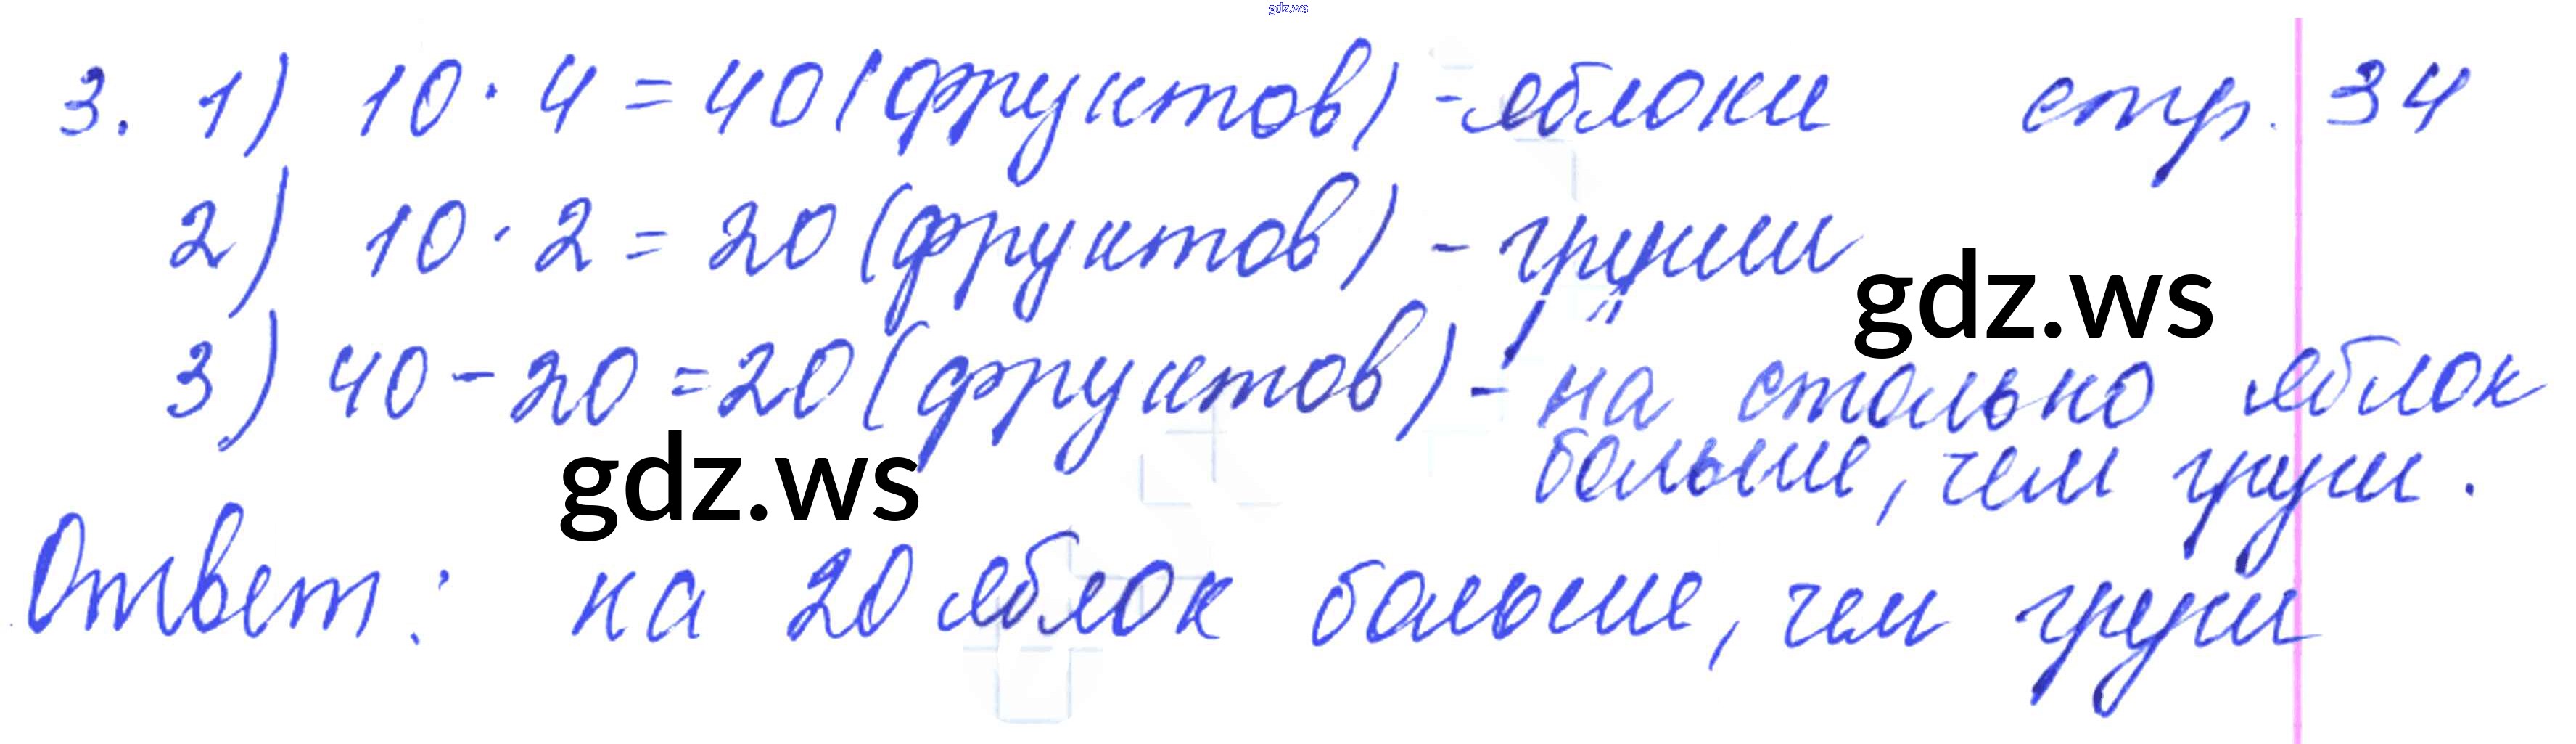 gdz.ws
3. 1) 10 · 4 = 40 (фруктов) - яблоки стр. 34
2) 10 · 2 = 20 (фруктов) - груши
gdz.ws
3) 40 - 20 = 20 (фруктов) - на столько яблок
больше, чем груш.
gdz.ws
Ответ: на 20 яблок больше, чем груш